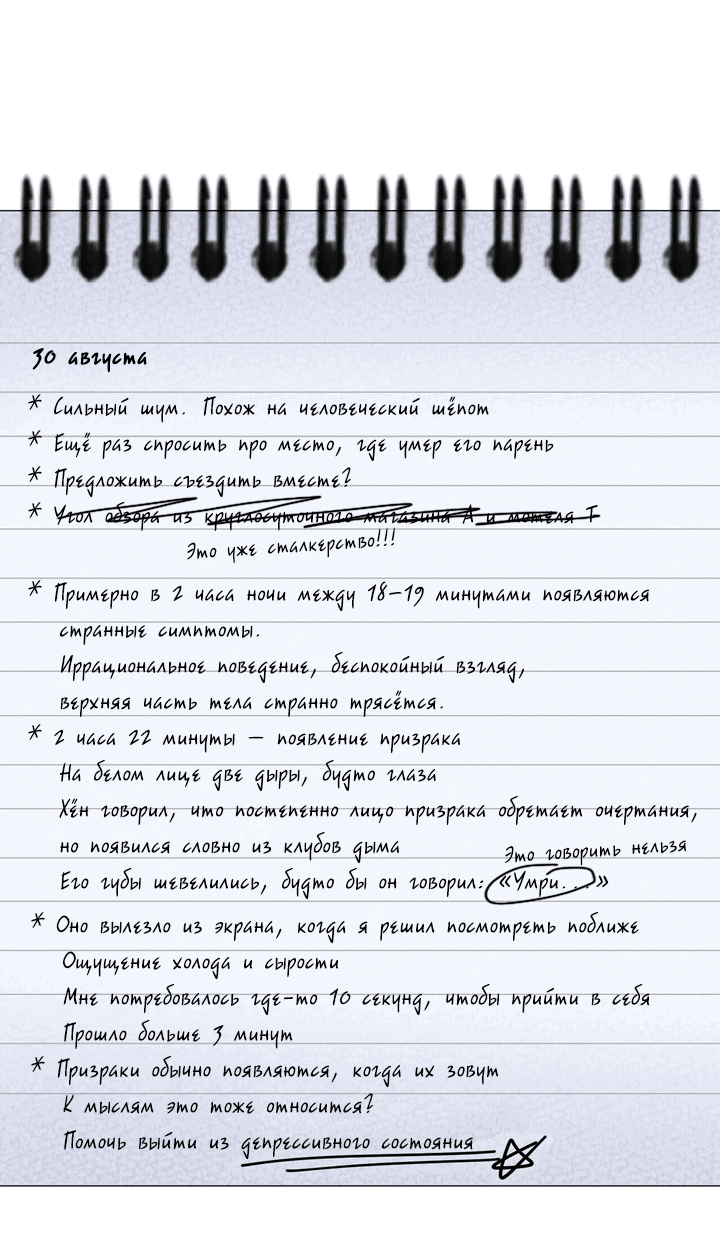 30 августа
* Сильный шум. Похож на человеческий шёпот
* Ещё раз спросить про место, где умер его парень
* Предложить съездить вместе?
* Угол обзора из круглосуточного магазина А и мотеля Т
Это уже сталкерство!!!
* Примерно в 2 часа ночи между 18–19 минутами появляются
странные симптомы.
Иррациональное поведение, беспокойный взгляд,
верхняя часть тела странно трясётся.
* 2 часа 22 минуты — появление призрака
На белом лице две дыры, будто глаза
Хён говорил, что постепенно лицо призрака обретает очертания,
но появился словно из клубов дыма
Это говорить нельзя
Его губы шевелились, будто бы он говорил: «Умри...»
* Оно вылезло из экрана, когда я решил посмотреть поближе
Ощущение холода и сырости
Мне потребовалось где-то 10 секунд, чтобы прийти в себя
Прошло больше 3 минут
* Призраки обычно появляются, когда их зовут
К мыслям это тоже относится?
Помочь выйти из депрессивного состояния